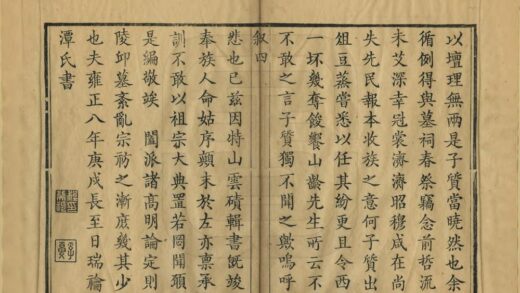 以壇理無兩是子質當曉然也余
循例得與墓祠春祭竊念前哲流
未艾深幸冠裳濟濟昭穆咸在尚
失先民報本收族之意何子質出
俎豆蒸嘗悉以任其紛更且令西
一坏幾奪餕饗山齡先生所云不
不敢之言子質獨不聞之歟嗚呼
叙四
悲也已茲因特山雲磧輯書既竣
奉族人命姑序顛末於左亦禀承
訓不敢以祖宗大典置若罔聞頋
是編敬竢 闔派諸高明論定則
陵邱墓紊亂宗祊之漸庶幾其少
也夫雍正八年庚戌長至日瑞
潭氏書